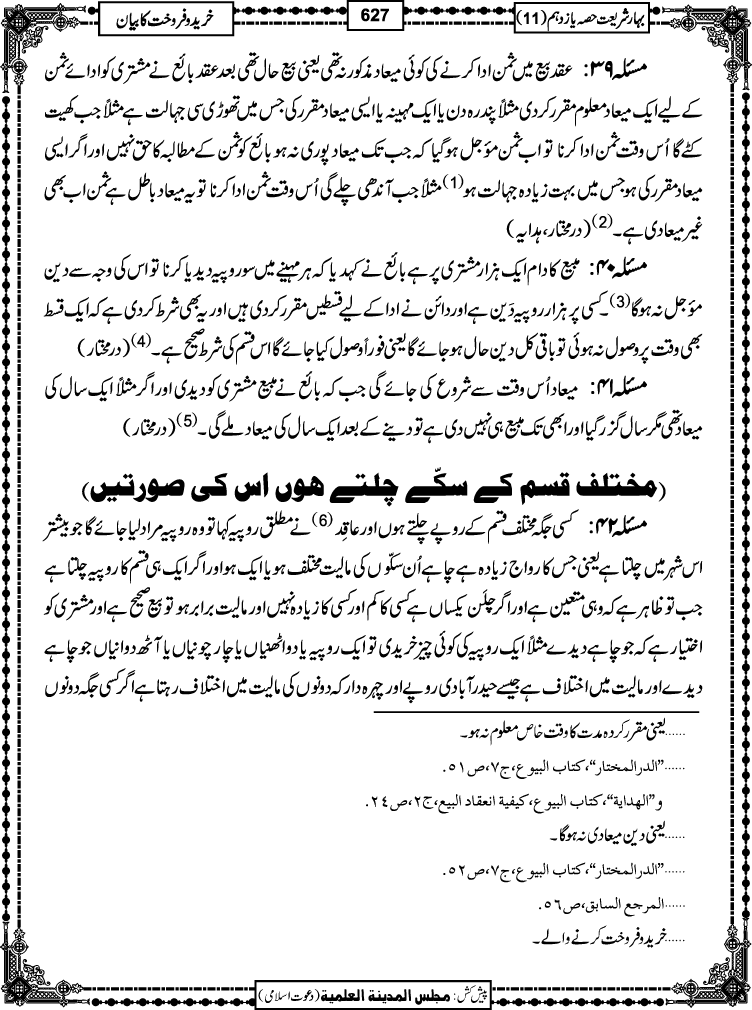 بہار شریعت حصہ یازدہم (11)
627
خرید و فروخت کا بیان
مسئلہ ۳۹: عقد بیع میں ثمن ادا کرنے کی کوئی میعاد مذکور نہ تھی یعنی بیع حال تھی بعد عقد بائع نے مشتری کو ادائے ثمن
کے لیے ایک میعاد معلوم مقرر کردی مثلاً پندرہ دن یا ایک مہینہ یا ایسی میعاد مقرر کی جس میں تھوڑی سی جہالت ہے مثلاً جب کھیت
کٹے گا اُس وقت ثمن ادا کرنا تو اب ثمن مؤجل ہوگیا کہ جب تک میعاد پوری نہ ہو بائع کو ثمن کے مطالبہ کا حق نہیں اور اگر ایسی
میعاد مقرر کی ہو جس میں بہت زیادہ جہالت ہو(1) مثلاً جب آندھی چلے گی اُس وقت ثمن ادا کرنا تو یہ میعاد باطل ہے ثمن اب بھی
غیر میعادی ہے۔(2) (درمختار، ہدایہ)
مسئلہ ۴۰: مبیع کا دام ایک ہزار مشتری پر ہے بائع نے کہدیا کہ ہر مہینے میں سو روپیہ دیدیا کرنا تو اس کی وجہ سے دین
مؤجل نہ ہوگا(3)۔ کسی پر ہزار روپیہ دَین ہے اور دائن نے ادا کے لیے قسطیں مقرر کردی ہیں اور یہ بھی شرط کردی ہے کہ ایک قسط
بھی وقت پر وصول نہ ہوئی تو باقی کل دین حال ہو جائے گا یعنی فوراً وصول کیا جائے گا اس قسم کی شرط صحیح ہے۔(4) (درمختار)
مسئلہ ۴۱: میعاد اُس وقت سے شروع کی جائے گی جب کہ بائع نے مبیع مشتری کو دیدی اور اگر مثلاً ایک سال کی
میعاد تھی مگر سال گزر گیا اور ابھی تک مبیع ہی نہیں دی ہے تو دینے کے بعد ایک سال کی میعاد ملے گی۔(5) (درمختار)
(مختلف قسم کے سکّے چلتے ہوں اس کی صورتیں)
مسئلہ ۴۲: کسی جگہ مختلف قسم کے روپے چلتے ہوں اور عاقِد(6) نے مطلق روپیہ کہا تو وہ روپیہ مراد لیا جائے گا جو بیشتر
اس شہر میں چلتا ہے یعنی جس کا رواج زیادہ ہے چاہے اُن سکّوں کی مالیت مختلف ہو یا ایک ہو اور اگر ایک ہی قسم کا روپیہ چلتا ہے
جب تو ظاہر ہے کہ وہی متعین ہے اور اگر چلَن یکساں ہے کسی کا کم اور کسی کا زیادہ نہیں اور مالیت برابر ہو تو بیع صحیح ہے اور مشتری کو
اختیار ہے کہ جو چاہے دیدے مثلاً ایک روپیہ کی کوئی چیز خریدی تو ایک روپیہ یا دو اٹھنیاں یا چار چونیاں یا آٹھ دوانیاں جو چاہے
دیدے اور مالیت میں اختلاف ہے جیسے حیدرآبادی روپے اور چہرہ دار کہ دونوں کی مالیت میں اختلاف رہتا ہے اگر کسی جگہ دونوں
......یعنی مقرر کردہ مدت کا وقت خاص معلوم نہ ہو۔
......"الدرالمختار"،کتاب البیوع،ج۷،ص۵۱.
و"الهدایة"،کتاب البیوع،کیفیة انعقاد البیع،ج۲،ص۲۴.
......یعنی دین میعادی نہ ہوگا۔
......"الدرالمختار"،کتاب البیوع،ج۷،ص۵۲.
......المرجع السابق،ص۵۶.
......خرید و فروخت کرنے والے۔
پیش کش: مجلس المدینة العلمیة (دعوت اسلامی)